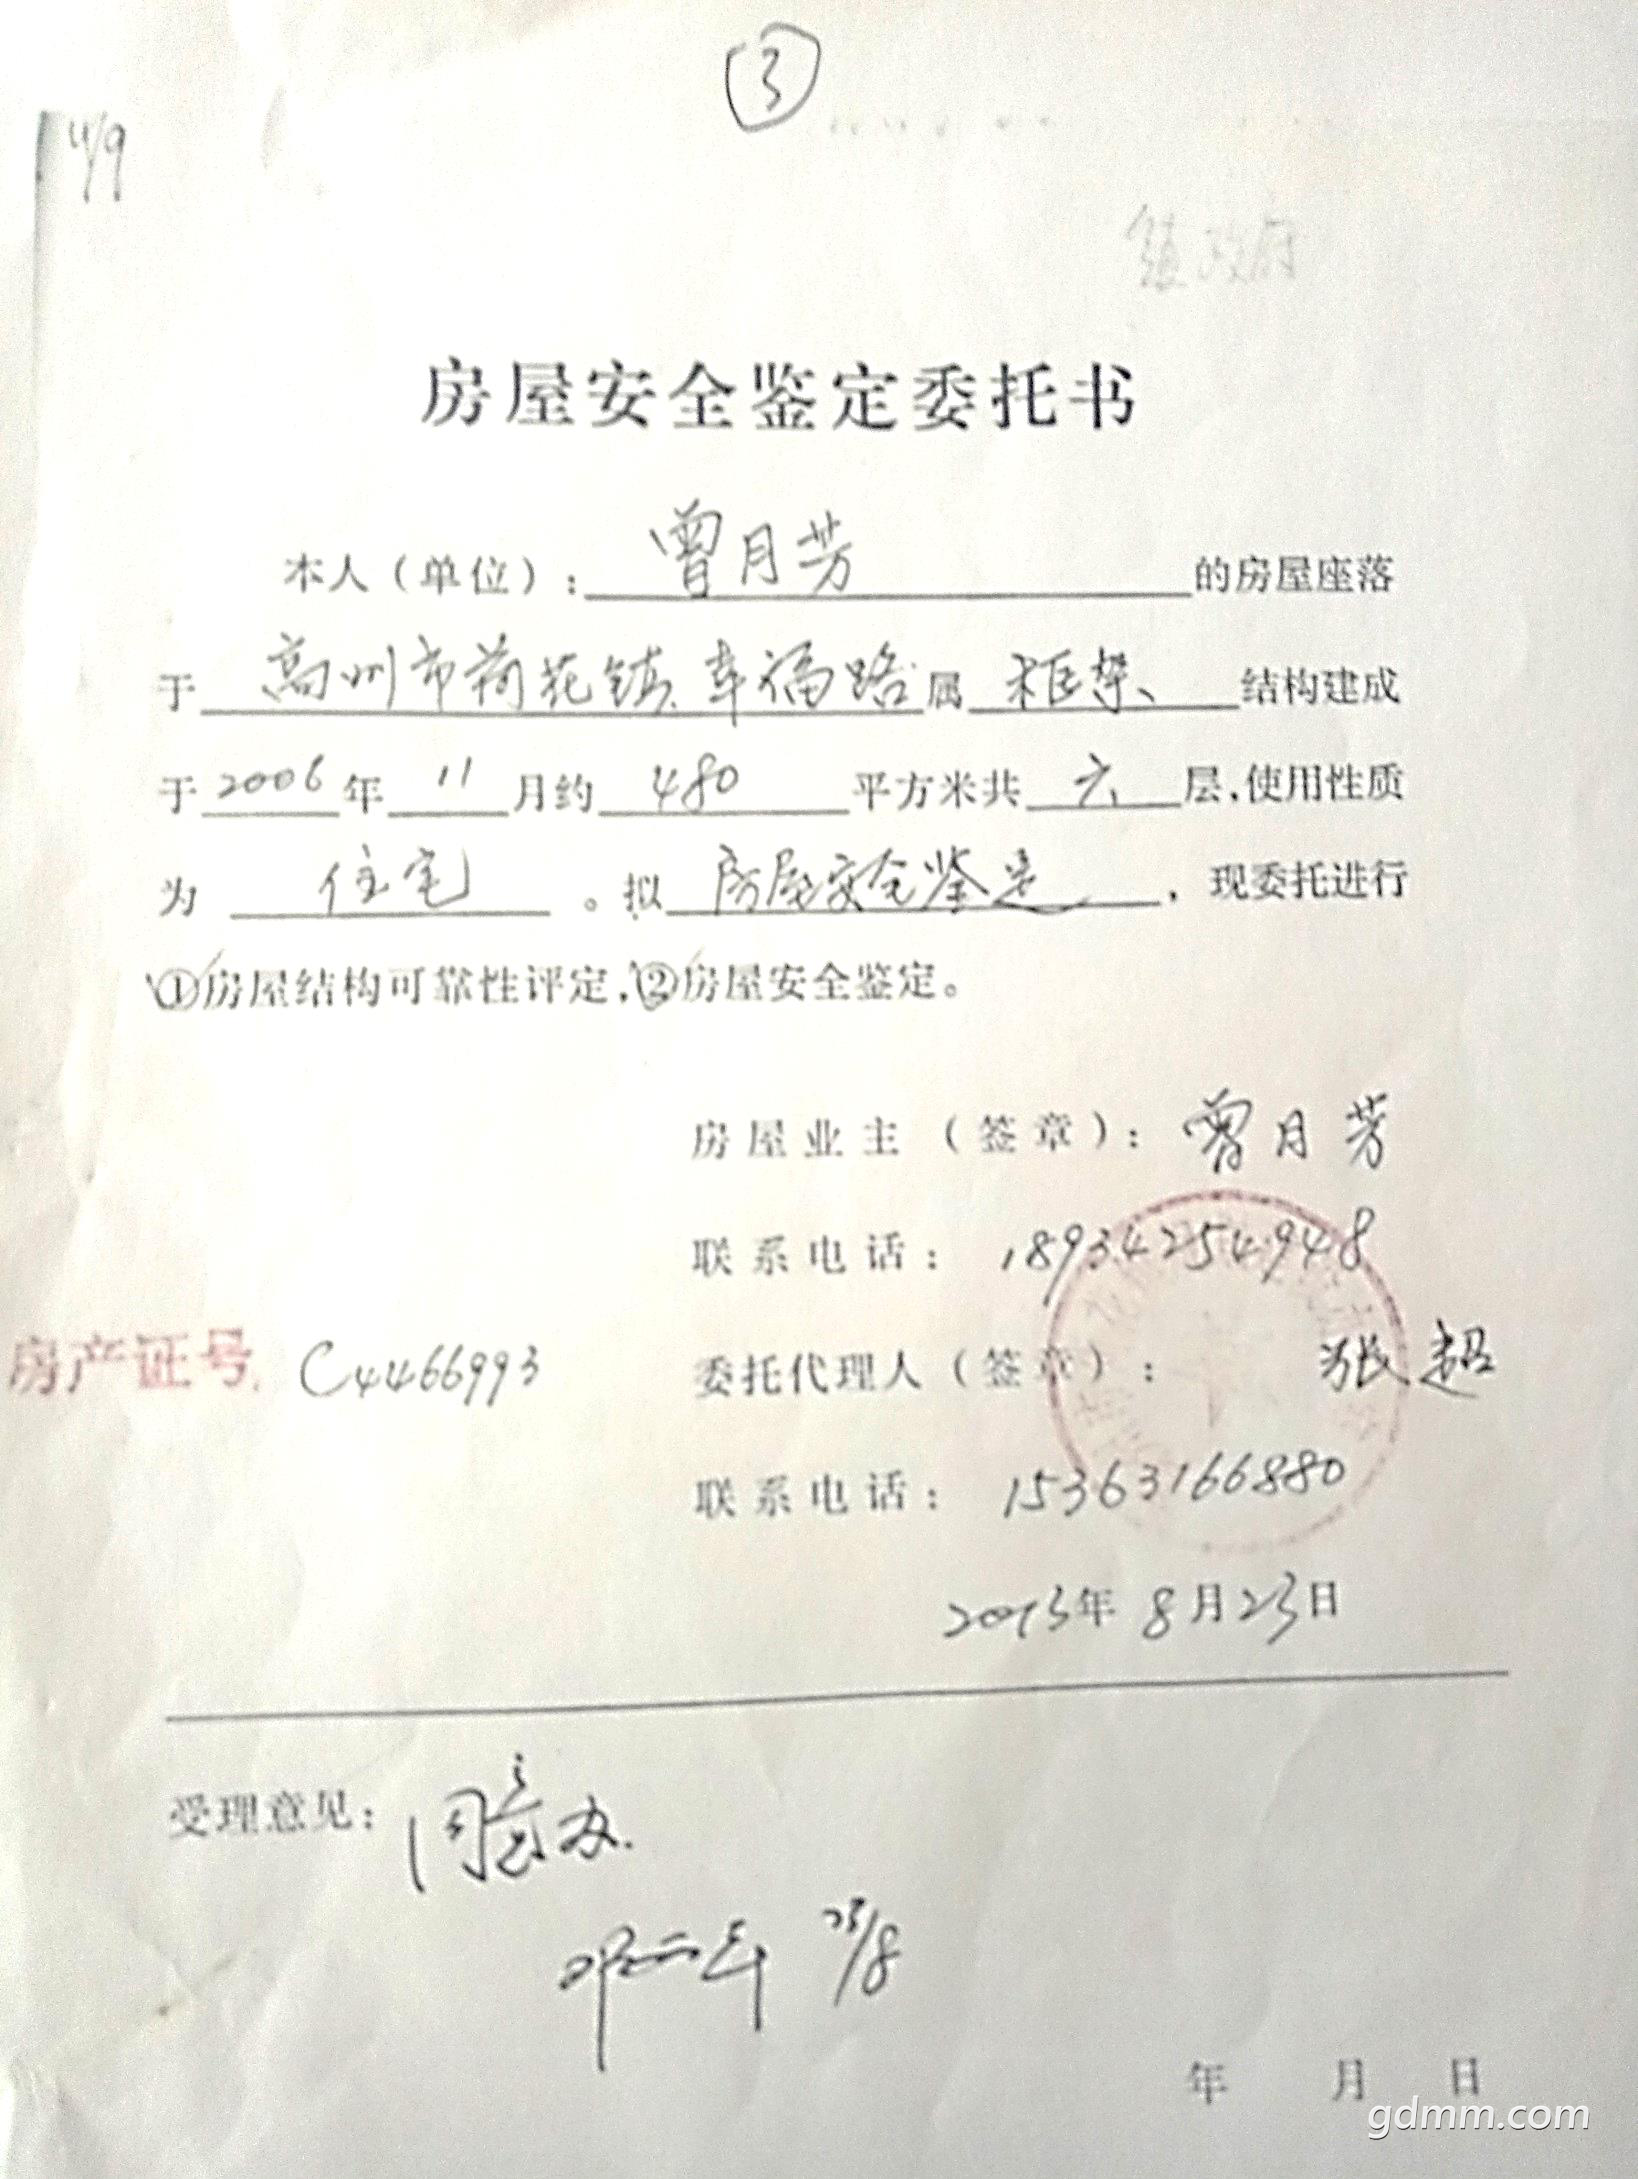 ③
11/9
镇政府
房屋安全鉴定委托书
本人（单位）：曾月芳的房屋座落
于高州市荷花镇幸福路属框架结构建成
于2006年11月约480平方米共六层,使用性质
为住宅。拟房屋安全鉴定，现委托进行
①房屋结构可靠性评定,②房屋安全鉴定。
房屋业主（签章）：曾月芳
联系电话：18934254948
房产证号 C4466993 委托代理人（签章）：张超
联系电话：15363166880
2013年8月23日
受理意见：同意办.
年 月 日
gdmm.com